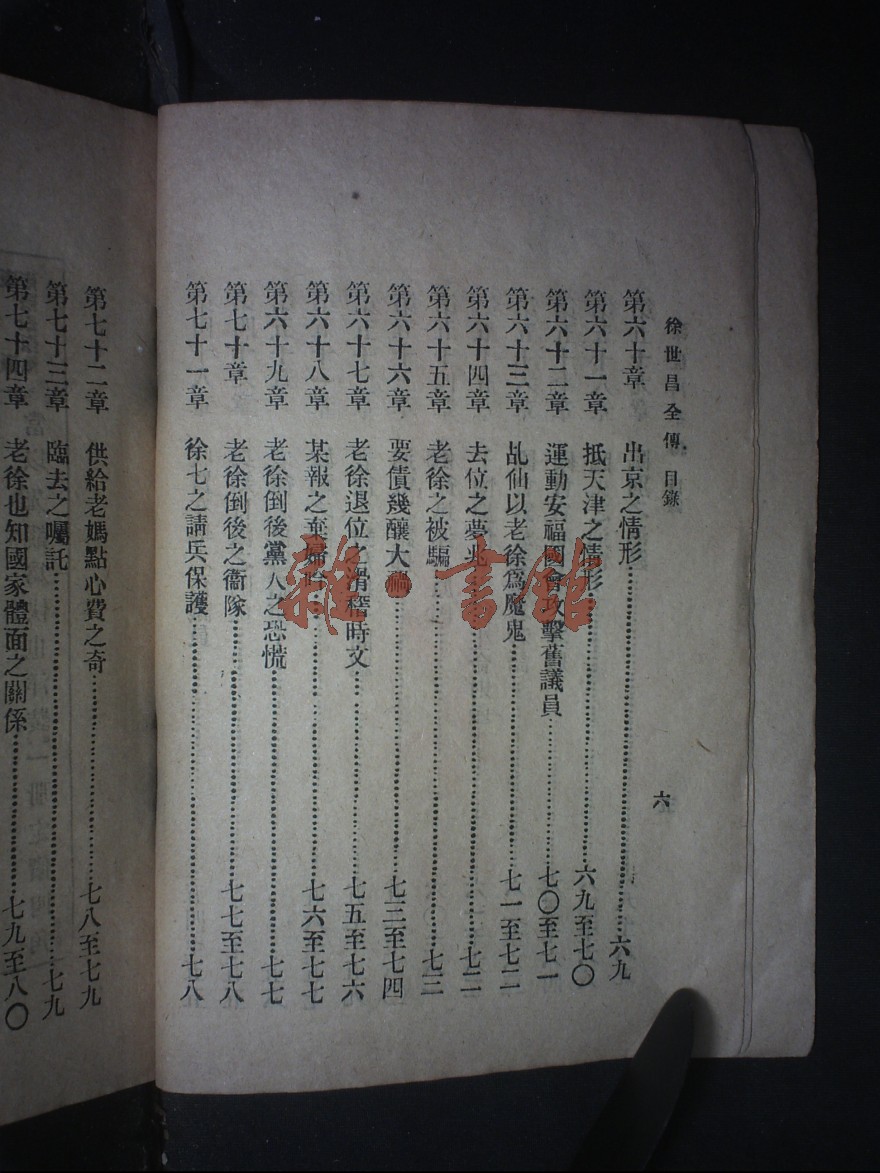 徐世昌全傳 目錄 六
第六十章 出京之情形……六九
第六十一章 抵天津之情形……六九至七〇
第六十二章 運動安福國會攻擊舊議員……七〇至七一
第六十三章 乩仙以老徐爲魔鬼……七一至七二
第六十四章 去位之夢兆……七二
第六十五章 老徐之被騙……七三
第六十六章 要債幾釀大禍……七三至七四
第六十七章 老徐退位之滑稽時文……七五至七六
第六十八章 某報之棄婦吟……七六至七七
第六十九章 老徐倒後黨人之恐慌……七七
第七十章 老徐倒後之衞隊……七七至七八
第七十一章 徐七之請兵保護……七八
第七十二章 供給老媽點心費之奇……七八至七九
第七十三章 臨去之囑託……七九
第七十四章 老徐也知國家體面之關係……七九至八〇
雜·書館